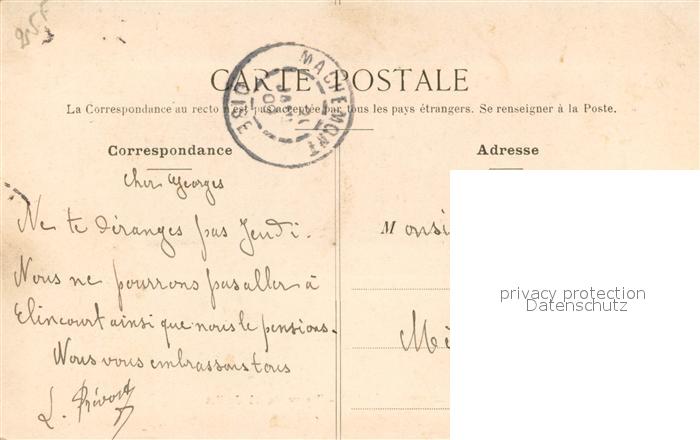 CARTE POSTALE
La Correspondance au recto n'est pas acceptée par tous les pays étrangers. Se renseigner à la Poste.
MACHEMONT
OISE
Correspondance
Cher Georges
Ne te déranges pas Jeudi.
Nous ne pourrons pas aller à
Elincourt ainsi que nous le pensions.
Nous vous embrassons tous
L. Prévost
Adresse
Monsi
Mé
privacy protection
Datenschutz